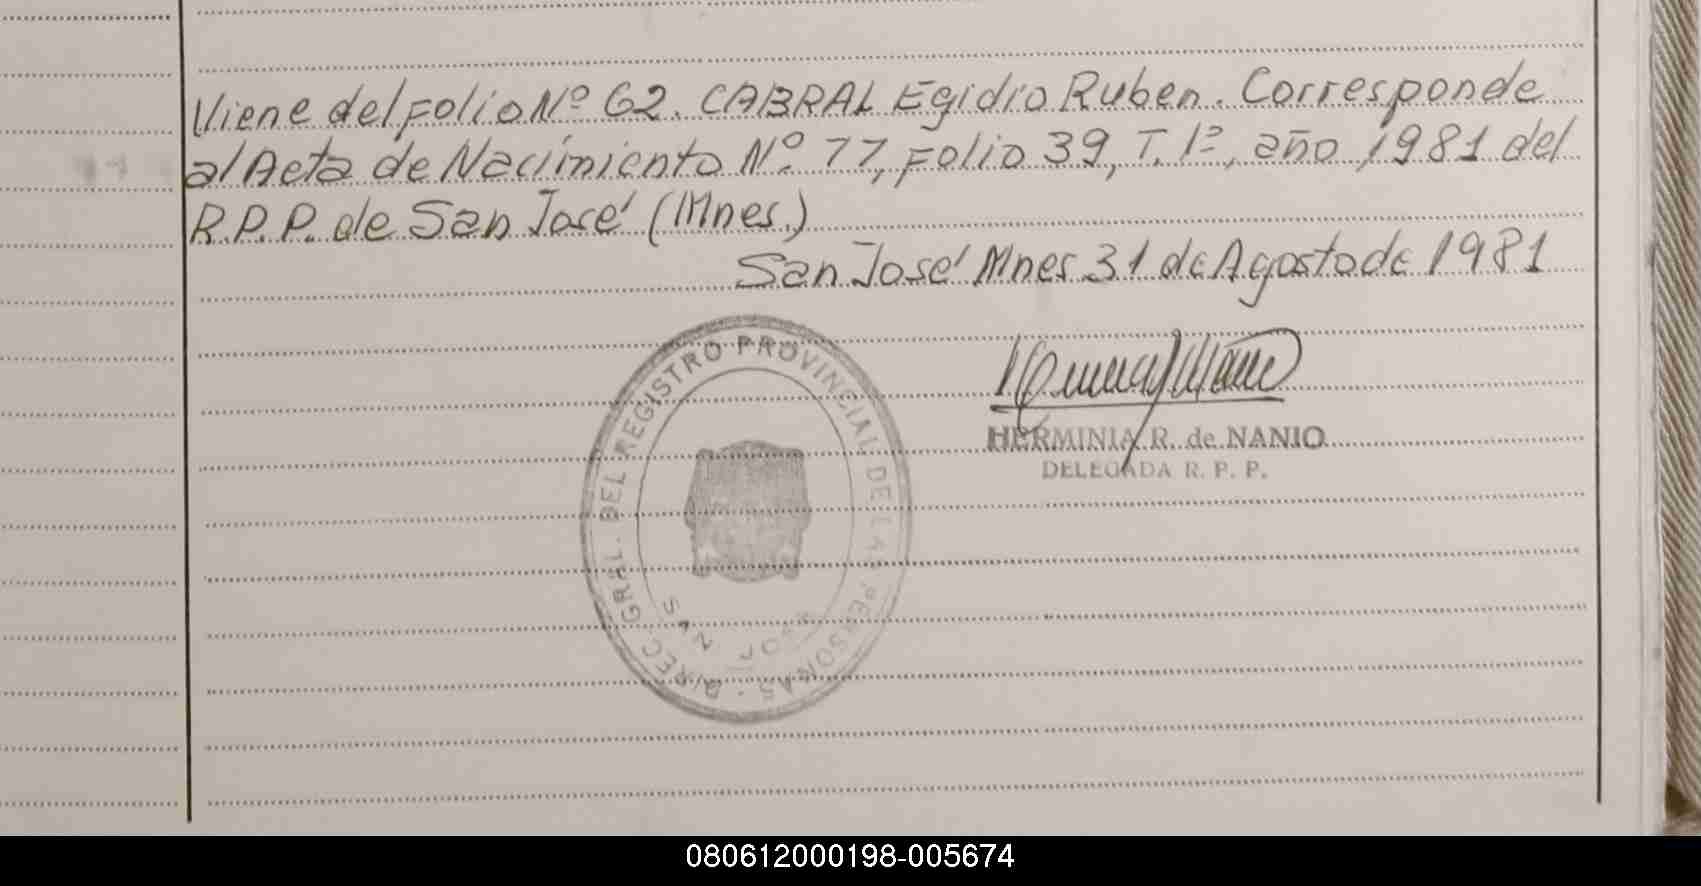 Viene del folio Nº 62. CABRAL Egidio Ruben. Corresponde
al Acta de Nacimiento Nº 77, Folio 39, T. 1º, año 1981 del
R.P.P. de San José (Mnes.)
San José Mnes 31 de Agosto de 1981
HERMINIA R. de NANIO
DELEGADA R. P. P.
DIREC. GRAL. DEL REGISTRO PROVINCIAL DE LAS PERSONAS.
SAN JOSE
080612000198-005674